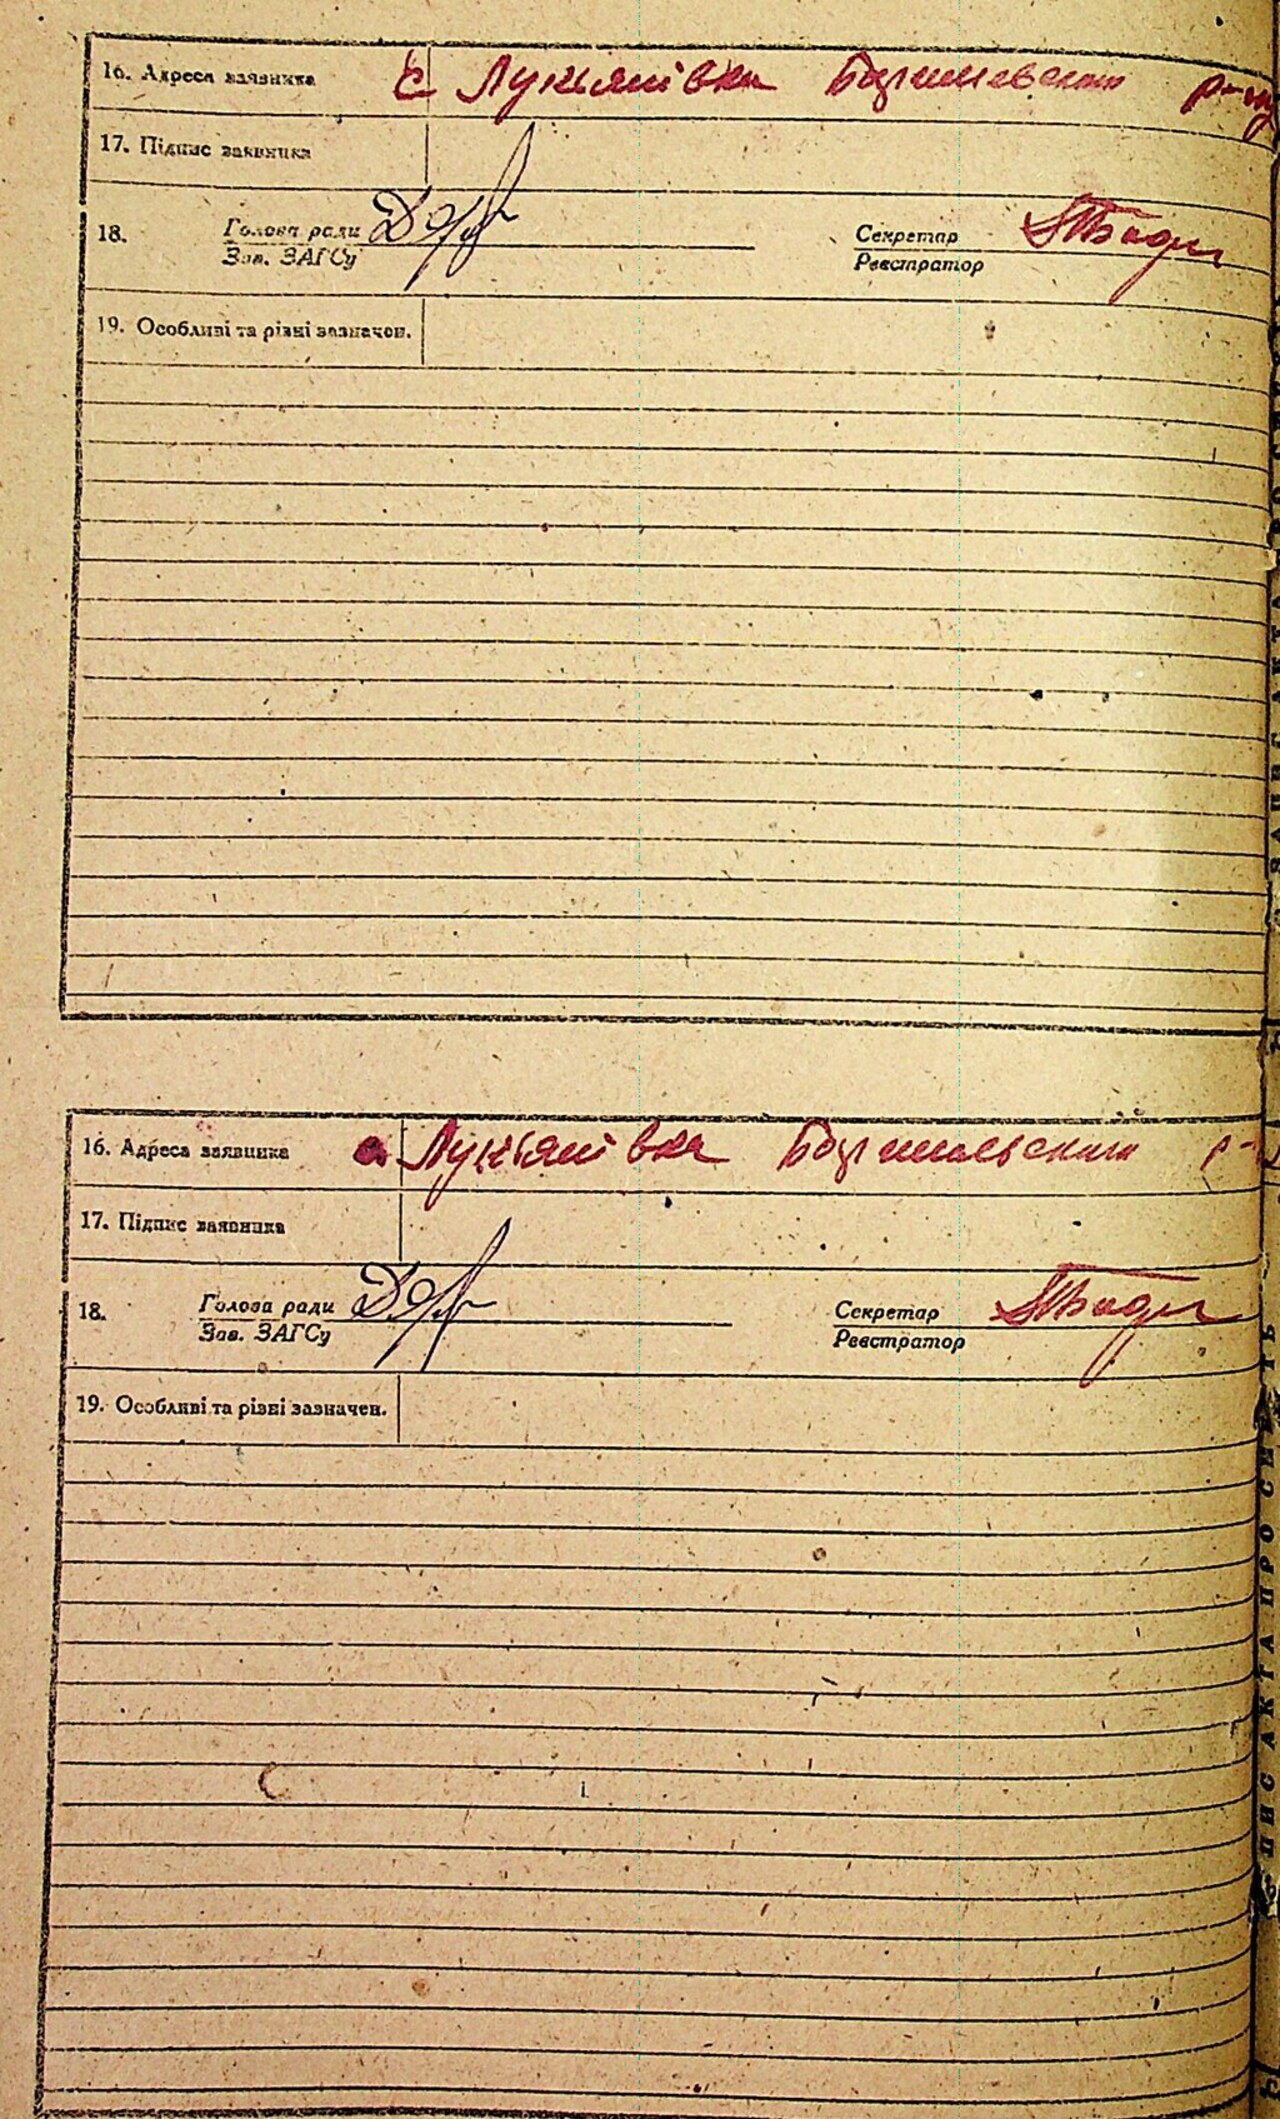 16. Адреса заявника с Лукьянівка Баришевского р-ну
17. Підпис заявника
18. Голова ради Секретар
Зав. ЗАГСу Реєстратор
19. Особливі та різні зазначен.
16. Адреса заявника с. Лукьянівка Баришевского р-
17. Підпис заявника
18. Голова ради Секретар
Зав. ЗАГСу Реєстратор
19. Особливі та різні зазначен.
ПИС АКТА ПРО СМЕРТЬ